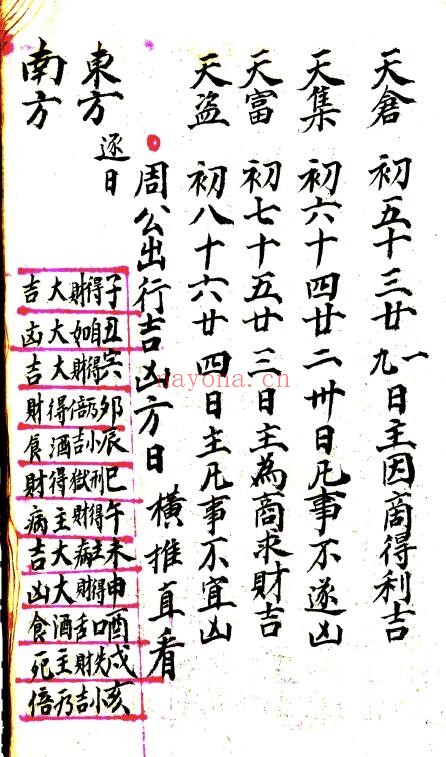 天倉 初五十三廿一九日主因商得利吉
天集 初六十四廿二卅日凡事不遂凶
天富 初七十五廿三日主為商求財吉
天盗 初八十六廿四日主凡事不宜凶
周公出行吉凶方日 橫推直看
逐日
東方
南方
子得財大吉
丑自如大凶
寅得財大吉
卯乃倍得財
辰小吉酒食
巳刑獄得財
午得財主病
未主病大吉
申得財大凶
酉口舌酒食
戌失財主死
亥小吉乃倍
nayona.cn